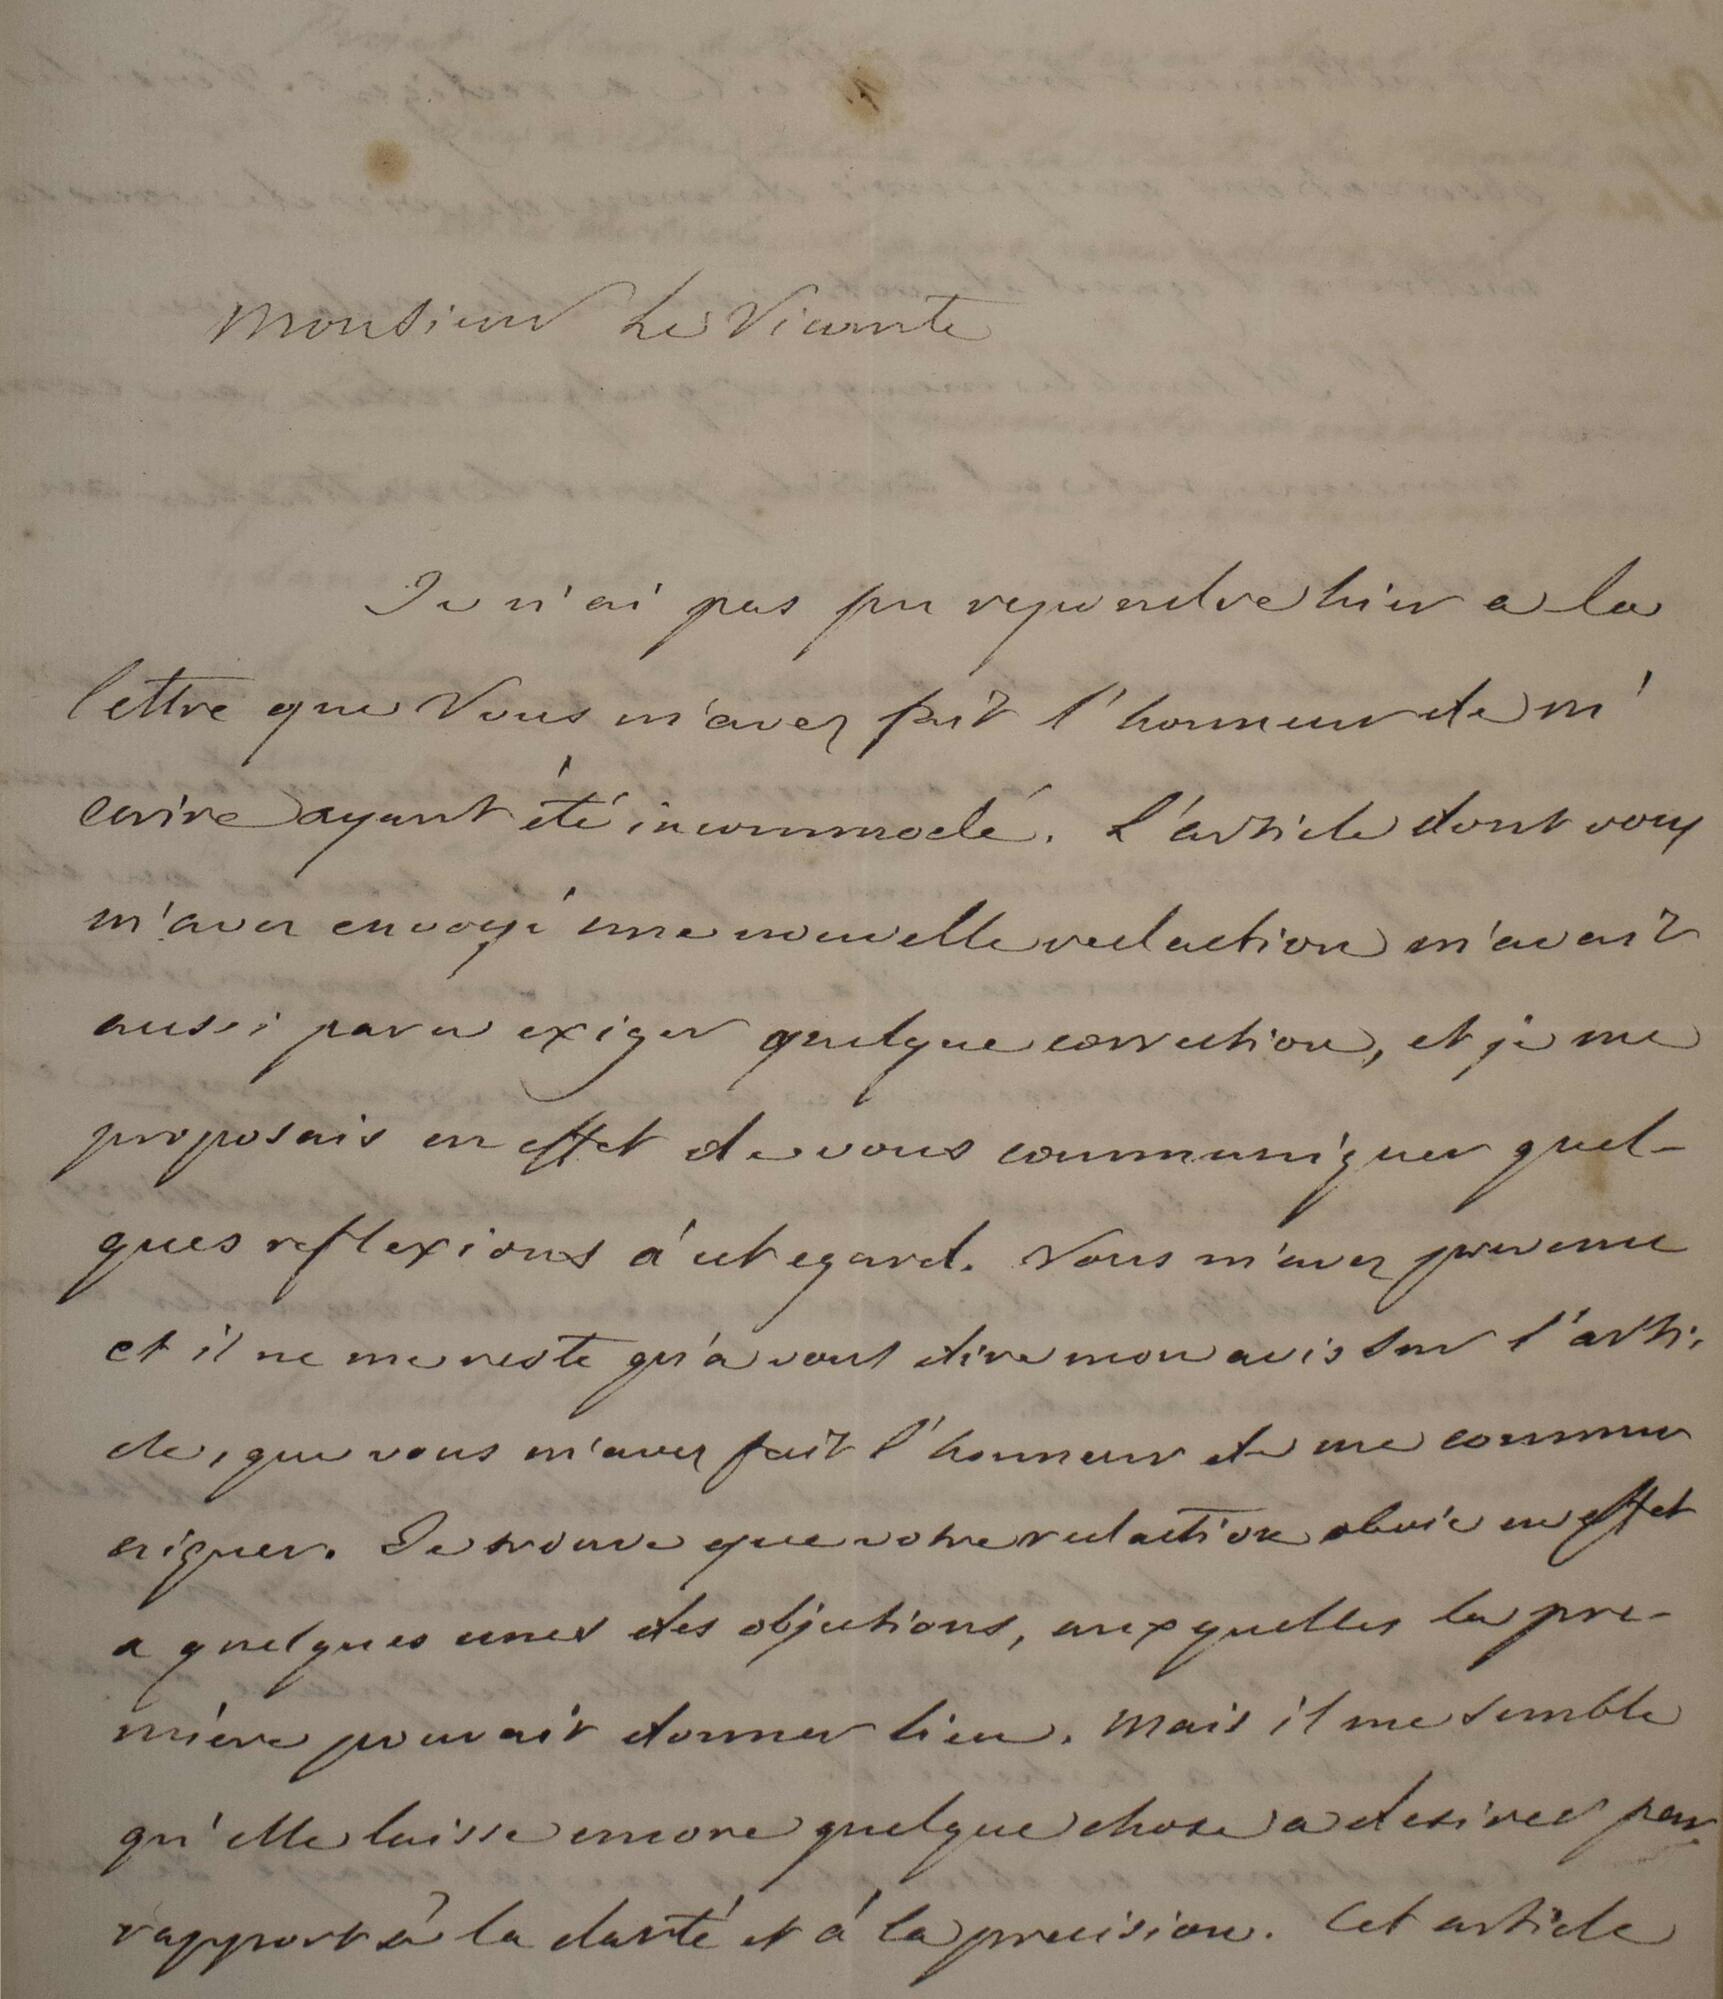 Monsieur Le Vicomte
Je n'ai pas pu repondre hier a la
lettre que Vous m'avez fait l'honneur de m'
ecrire ayant été incommodé. L'article dont vous
m'avez envoyé une nouvelle redaction m'avait
aussi paru exiger quelque correction, et je me
proposais en effet de vous communiquer quel-
ques reflexions á cet egard. Vous m'avez prevenu
et il ne me reste qu'a vous dire mon avis sur l'arti-
cle, que vous m'avez fait l'honneur de me commu
niquer. Je trouve que votre redaction obvie en effet
a quelques unes des objections, auxquelles la pre-
mière pouvait donner lieu. Mais il me semble
qu'elle laisse encore quelque chose a desirer par
rapport à la clarté et á la precision. Cet article